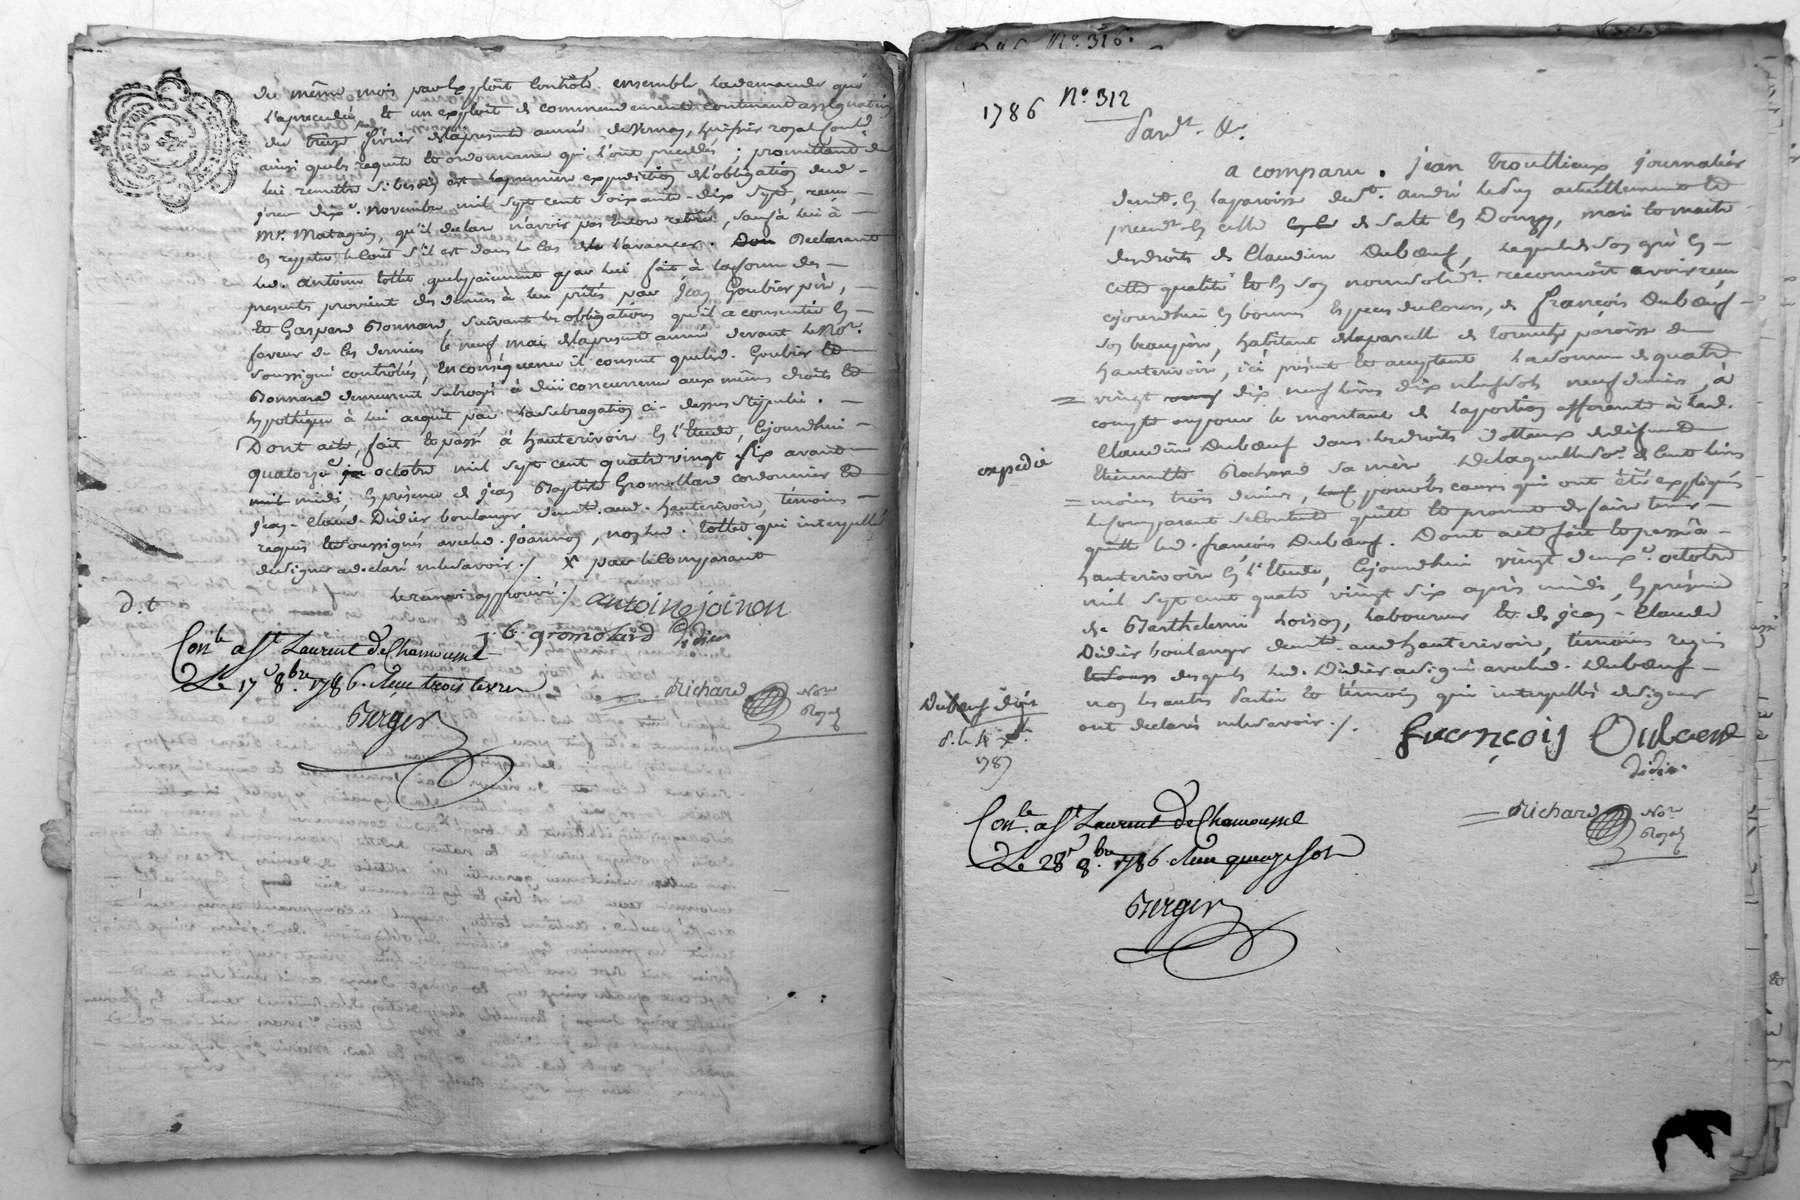 du même mois par Exploit Controlé ensemble la demande qui
l'a precedée et un exploit de commendement contenant assignation
du treize février de la presente année de Vernay, huissier royal
ainsi que les requete et ordonnance qui l'ont precedés ; promettant de
lui remettre si besoin est la premiere expedition de l'obligation dud.
jour dix novembre mil sept cent soixante-dix sept, reçue
Mr. Matagrin, qu'il declare n'avoir pas encore retiré, sauf à lui à
en repeter le Cout s'il est dans le Cas de l'avancer. Declarant
led. antoine que le paiement par lui fait à la forme des
presents provient des deniers à lui prêtés par Jean Goubier père,
et Gaspard Bonnard, suivant les obligations qu'il a consenties en
faveur de Ces derniers le neuf mai de la presente année devant le Nore.
soussigné controlées, en conséquence il consent que led. Goubier et
Bonnard demeurent subrogés à due concurrence aux mêmes droits et
hypothéque à lui acquis par la subrogation ci-dessus stipulée.
Dont acte, fait et passé à hauterivoire en l'Etude, Cejourdhui
quatorze octobre mil sept cent quatre vingt six avant
midi, En présence de jean Baptiste Gromollard cordonnier et
Jean-Claude Didier boulanger demt. aud. hauterivoire, témoins
requis et soussignés avec led. joannon, non led. qui interpellé
de signer a declaré ne le savoir ./. X par le Comparant
le renvoi approuvé ./. antoine joinon
d.t
j b gromolard Didier
Conle. a St. Laurent de Chamousset
Le 17 8bre 1786. Reçu trois livres
Richard Nore Royal
Berger
No. 316.
1786 No. 312
Pardt. &.
a comparu. jean trouillieux journalier
demt. En la paroisse de St. andré actuellement et
Salt En Donzy, mari et maitre
des droits de Claudine Duboeuf, lequel de son gré En
cette qualité et En son nom reconnoit avoir reçu
cejourdhui En bonnes Especes du Cours, de françois Duboeuf
son beaupère, habitant de la parcelle de paroisse de
hauterivoire, ici présent et acceptant la somme de quatre
vingt dix neuf livres dix neuf sols neuf deniers, à
compte ou pour le montant de la portion afferante à lad.
Claudine Duboeuf dans les droits dottaux de defunte
expedié
Rochard sa mère, de laquelle somme de Cent livres
moins trois deniers, pour les causes qui ont été expliqués
le Comparant se Contente quitte et promet de faire tenir
quitte led. françois Duboeuf. Dont acte fait et passé à
hauterivoire En l'Etude, Cejourdhui vingt deux octobre
mil sept cent quatre vingt six après midi, En présence
de Barthelemi Loison, laboureur et de jean-Claude
Didier boulanger demt. aud. hauterivoire, témoins requis
desquels led. Didier a signé avec led. Duboeuf
non les autres Partie et témoin qui interpellés de signer
ont declaré ne le savoir ./.
1787
françois Duboeuf
Didier.
Conle. a St. Laurent de Chamousset
Le 28 8bre 1786. Reçu quinze sols
Richard Nore Royal
Berger